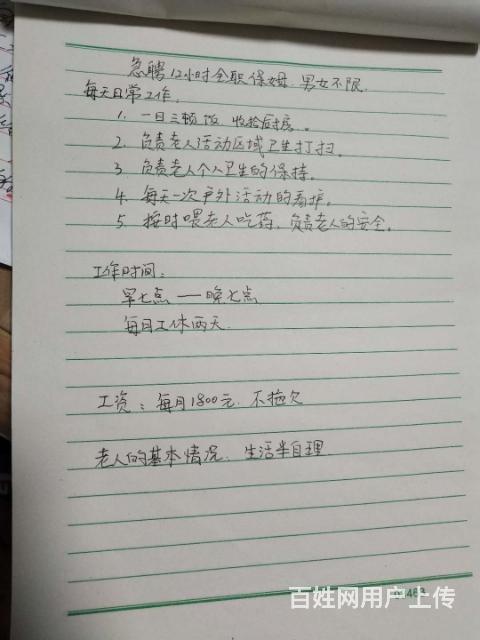 急聘12小时全职保姆 男女不限.
每天日常工作.
1. 一日三顿饭 收拾厨房..
2. 负责老人活动区域卫生打扫.
3. 负责老人个人卫生的保持.
4. 每天一次户外活动的看护.
5. 按时喂老人吃药.负责老人的安全.
工作时间:
早七点——晚七点
每月工休两天.
工资: 每月1800元. 不拖欠
老人的基本情况. 生活半自理.
百姓网用户上传